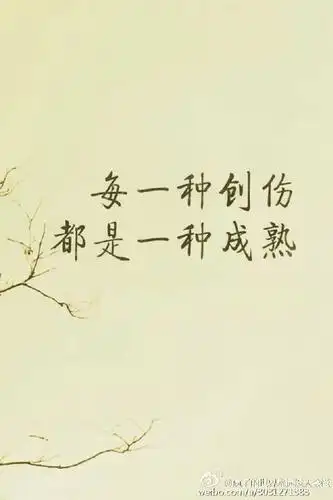 每一种创伤
都是一种成熟
weibo.com/u/3031271383